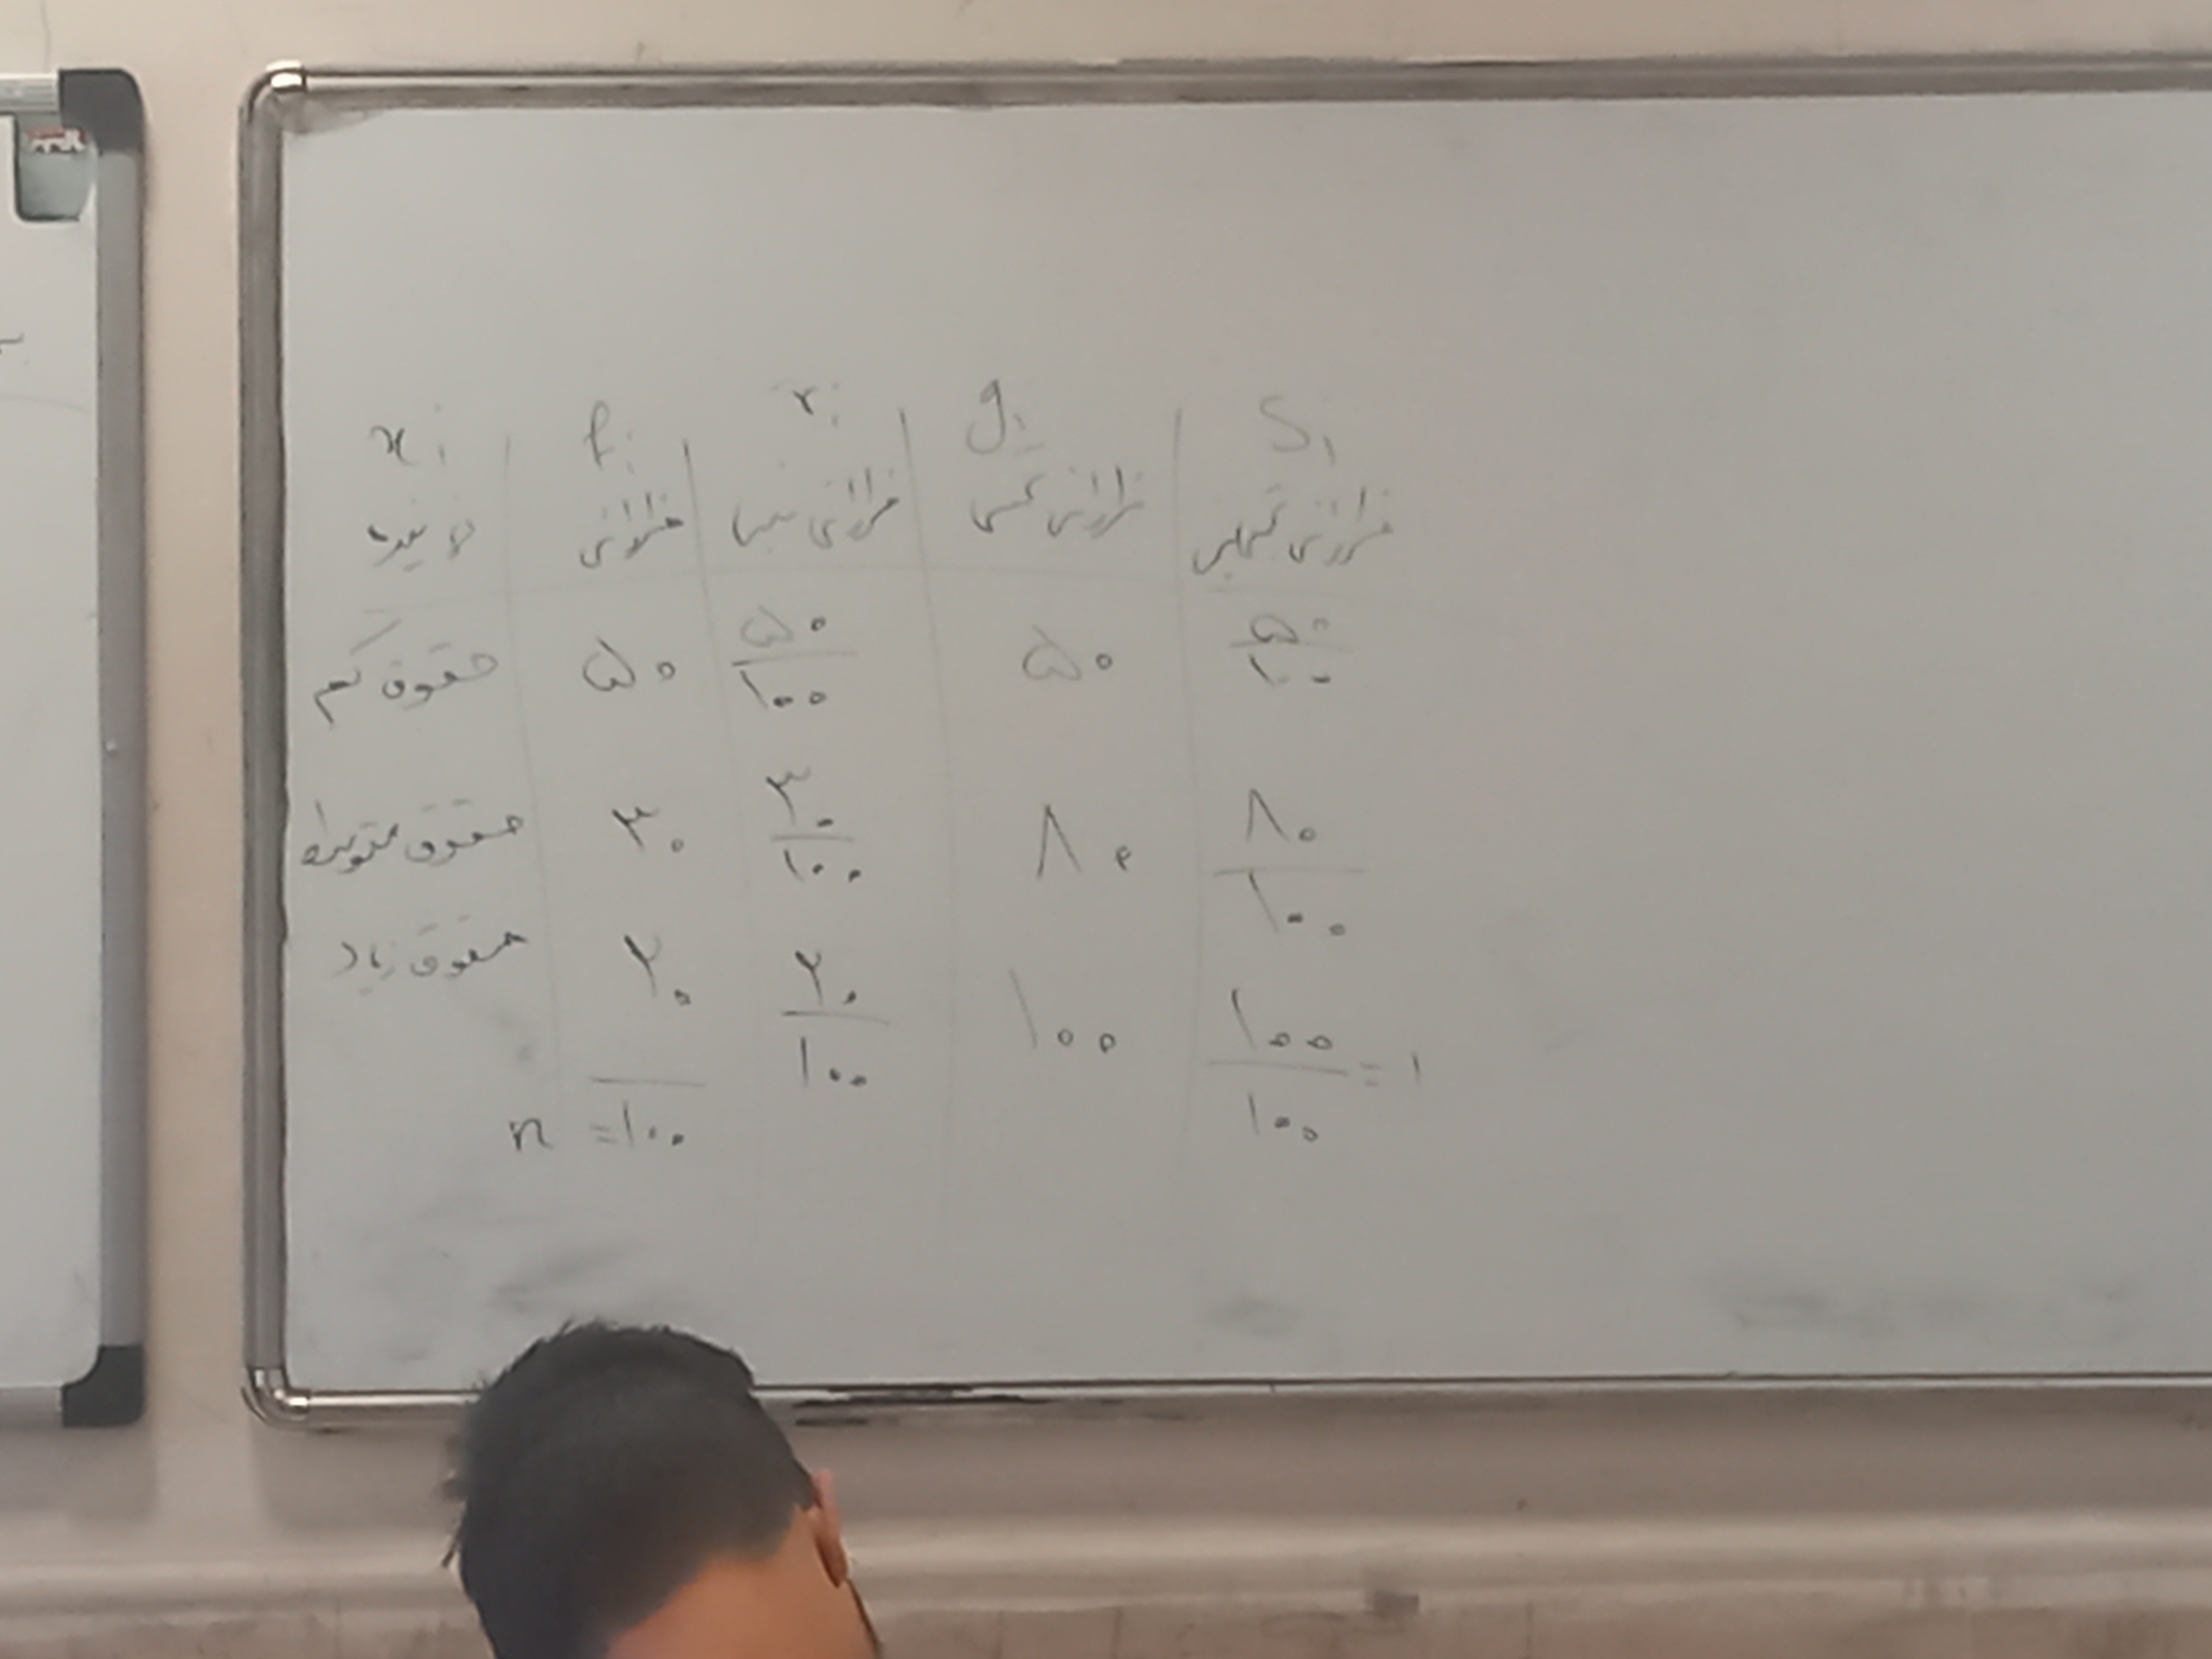 xᵢ fᵢ rᵢ gᵢ Sᵢ
فراوانی فراوانی نسبی فراوانی تجمعی فراوانی تجمعی
حقوق کم ۵۰ ۵۰/۱۰۰ ۵۰ ۵۰/۱۰۰
حقوق متوسط ۳۰ ۳۰/۱۰۰ ۸۰ ۸۰/۱۰۰
حقوق زیاد ۲۰ ۲۰/۱۰۰ ۱۰۰ ۱۰۰/۱۰۰ = ۱
n = ۱۰۰